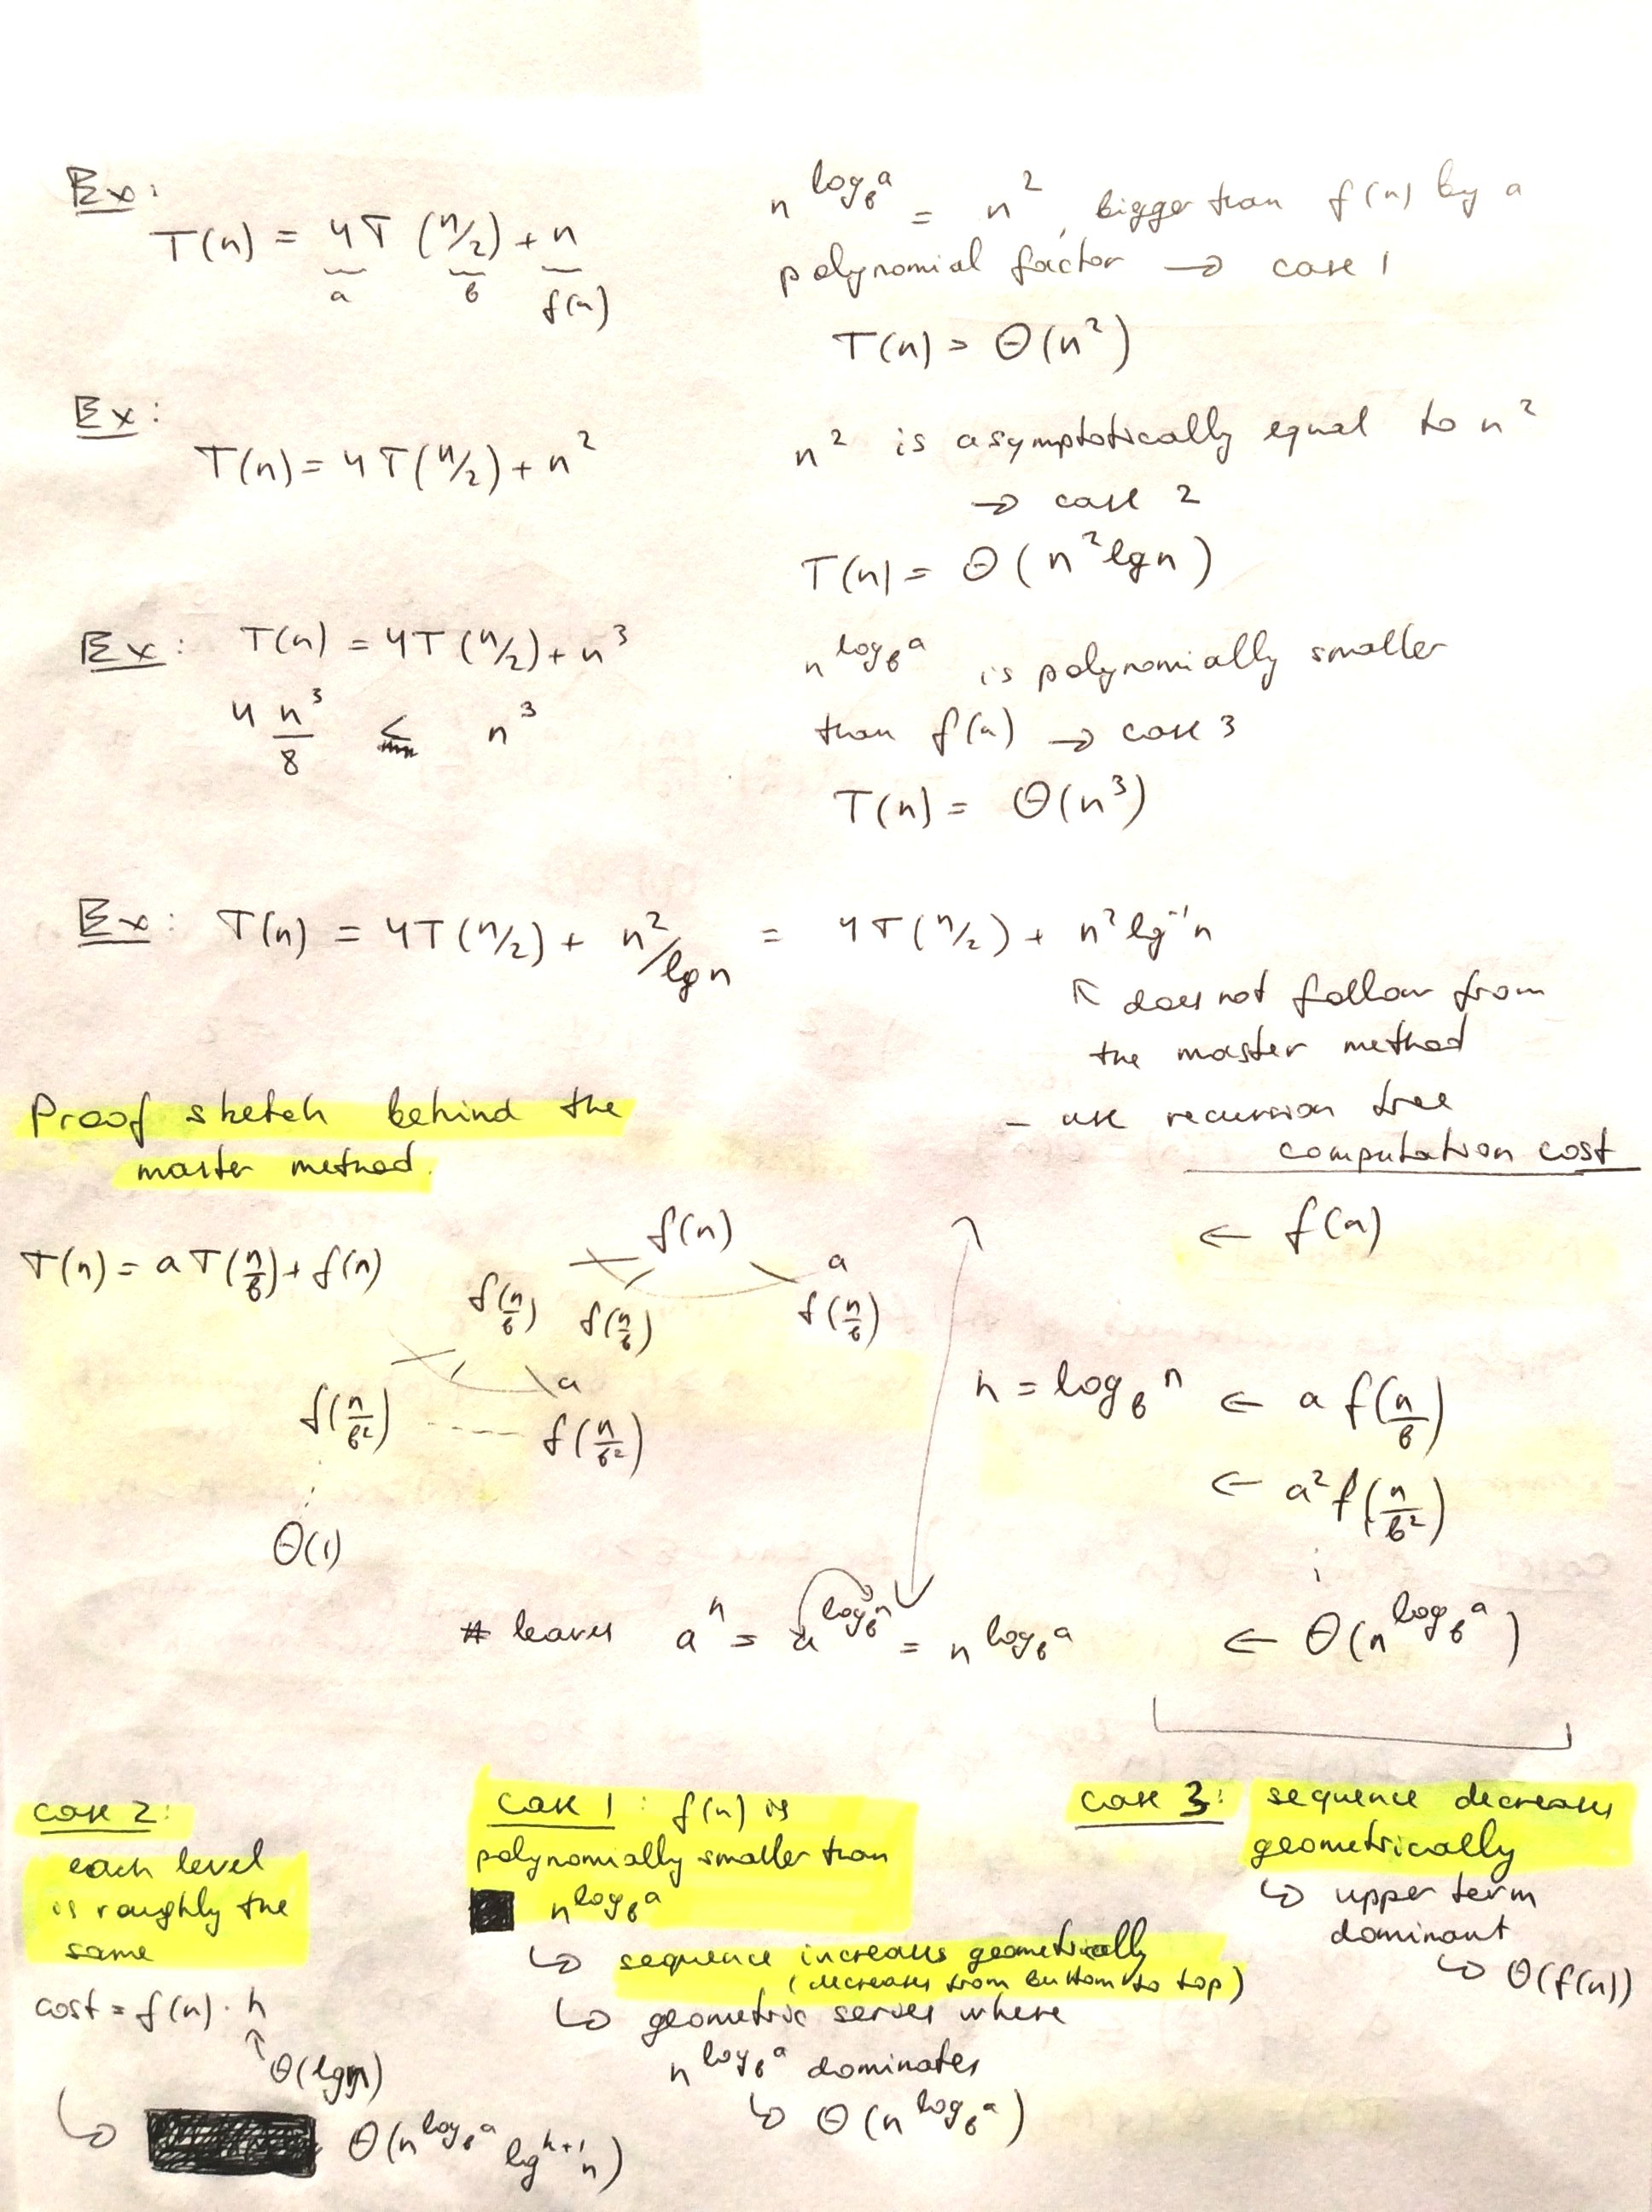 Ex:
T(n) = 4T(n/2) + n
a b f(n)
n^log_b a = n², bigger than f(n) by a
polynomial factor → case 1
T(n) = Θ(n²)
Ex:
T(n) = 4T(n/2) + n²
n² is asymptotically equal to n²
→ case 2
T(n) = Θ(n² lg n)
Ex: T(n) = 4T(n/2) + n³
4 n³/8 ≤ n³
n^log_b a is polynomially smaller
than f(n) → case 3
T(n) = Θ(n³)
Ex: T(n) = 4T(n/2) + n²/lg n = 4T(n/2) + n² lg⁻¹ n
↖ does not follow from
the master method
- use recursion tree
Proof sketch behind the
master method.
computation cost
T(n) = aT(n/b) + f(n)
f(n)
← f(n)
a
f(n/b) f(n/b) f(n/b)
h = log_b n ← a f(n/b)
a
f(n/b²) ---- f(n/b²)
← a² f(n/b²)
Θ(1)
# leaves a^h = a^log_b n = n^log_b a
← Θ(n^log_b a)
case 2:
each level
is roughly the
same
cost = f(n) · h
↑ Θ(lg n)
↳ Θ(n^log_b a lg^k+1 n)
case 1: f(n) is
polynomially smaller than
n^log_b a
↳ sequence increases geometrically
(decreases from buttom to top)
↳ geometric series where
n^log_b a dominates
↳ Θ(n^log_b a)
case 3: sequence decreases
geometrically
↳ upper term
dominant
↳ Θ(f(n))